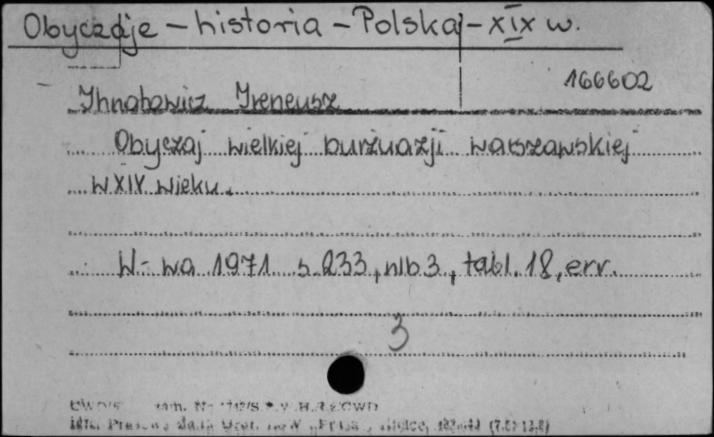 Obyczaje – historia – Polska – XIX w.
166602
Ihnatowicz Ireneusz
Obyczaj wielkiej burżuazji warszawskiej
w XIX wieku.
W-wa 1971 s. 233, nlb 3, tabl. 18, err.
3